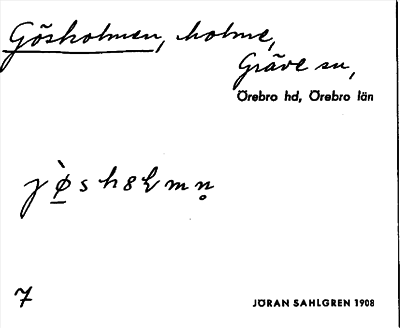 Gösholmen, holme,
Gräve sn,
Örebro hd, Örebro län
7
JÖRAN SAHLGREN 1908